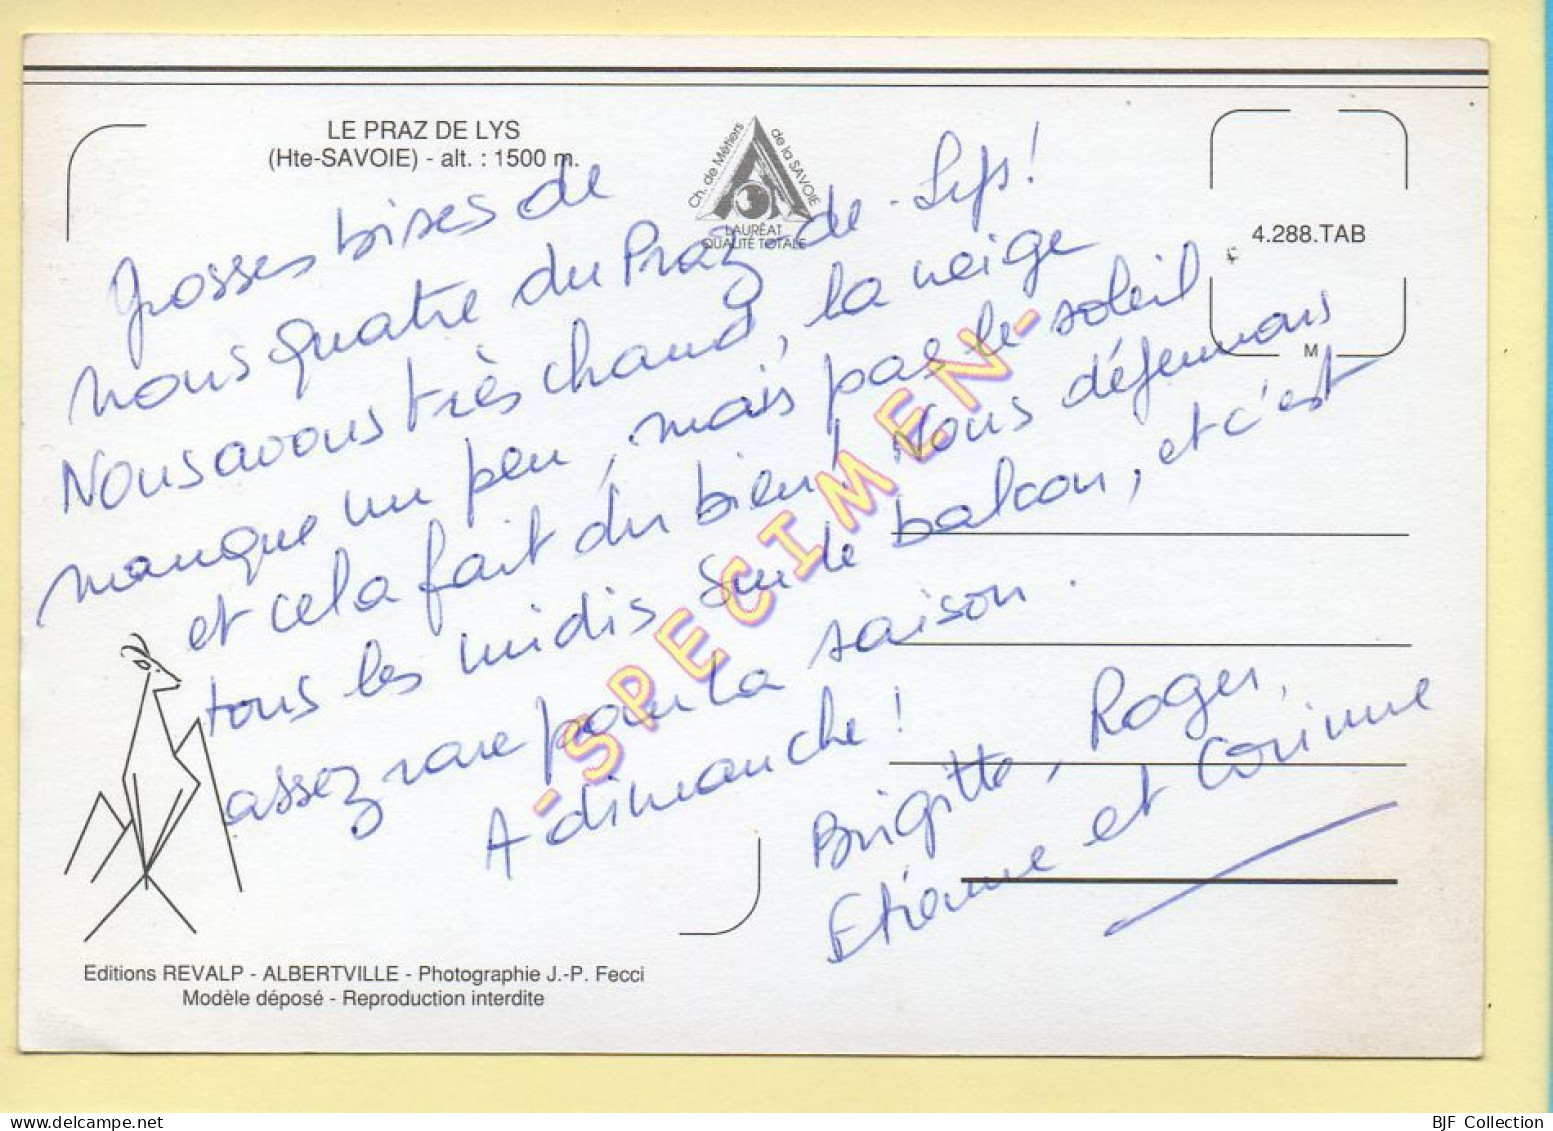 LE PRAZ DE LYS
(Hte-SAVOIE) - alt. : 1500 m.
Ch. de Métiers de la SAVOIE
LAURÉAT
QUALITÉ TOTALE
4.288.TAB
M
Grosses bises de
nous quatre du Praz-de-Lys!
Nous avons très chaud, la neige
manque un peu, mais pas le soleil
et cela fait du bien! Nous déjeunons
tous les midis sur le balcon, et c'est
assez rare pour la saison.
A dimanche!
Brigitte, Roger,
Etienne et Corinne
- SPECIMEN -
Editions REVALP - ALBERTVILLE - Photographie J.-P. Fecci
Modèle déposé - Reproduction interdite
BJF Collection